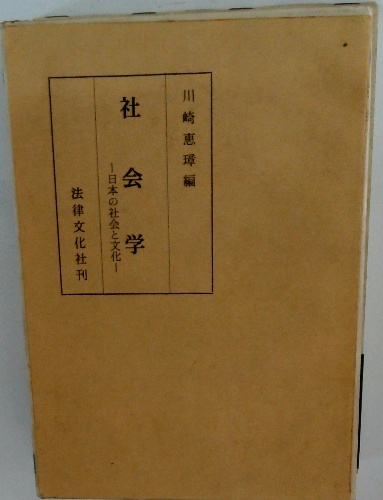 川崎恵璋編
社会学
―日本の社会と文化―
法律文化社刊